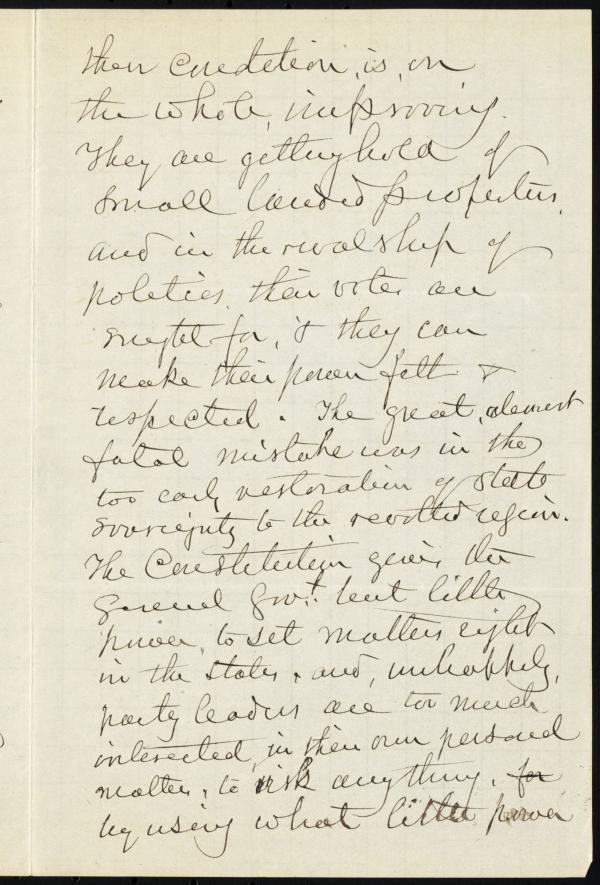 their condition, is, on
the whole, improving.
They are getting hold of
small landed properties,
and in the rivalship of
politics, their votes are
sought for, & they can
make their power felt &
respected. The great, almost
fatal mistake was in the
too early restoration of state
sovereignty to the revolted region.
The Constitution gives the
General Gov.t but little
power, to set matters right
in the states, and, unhappily,
party leaders are too much
interested, in their own personal
matters, to risk anything, for
by using what little power